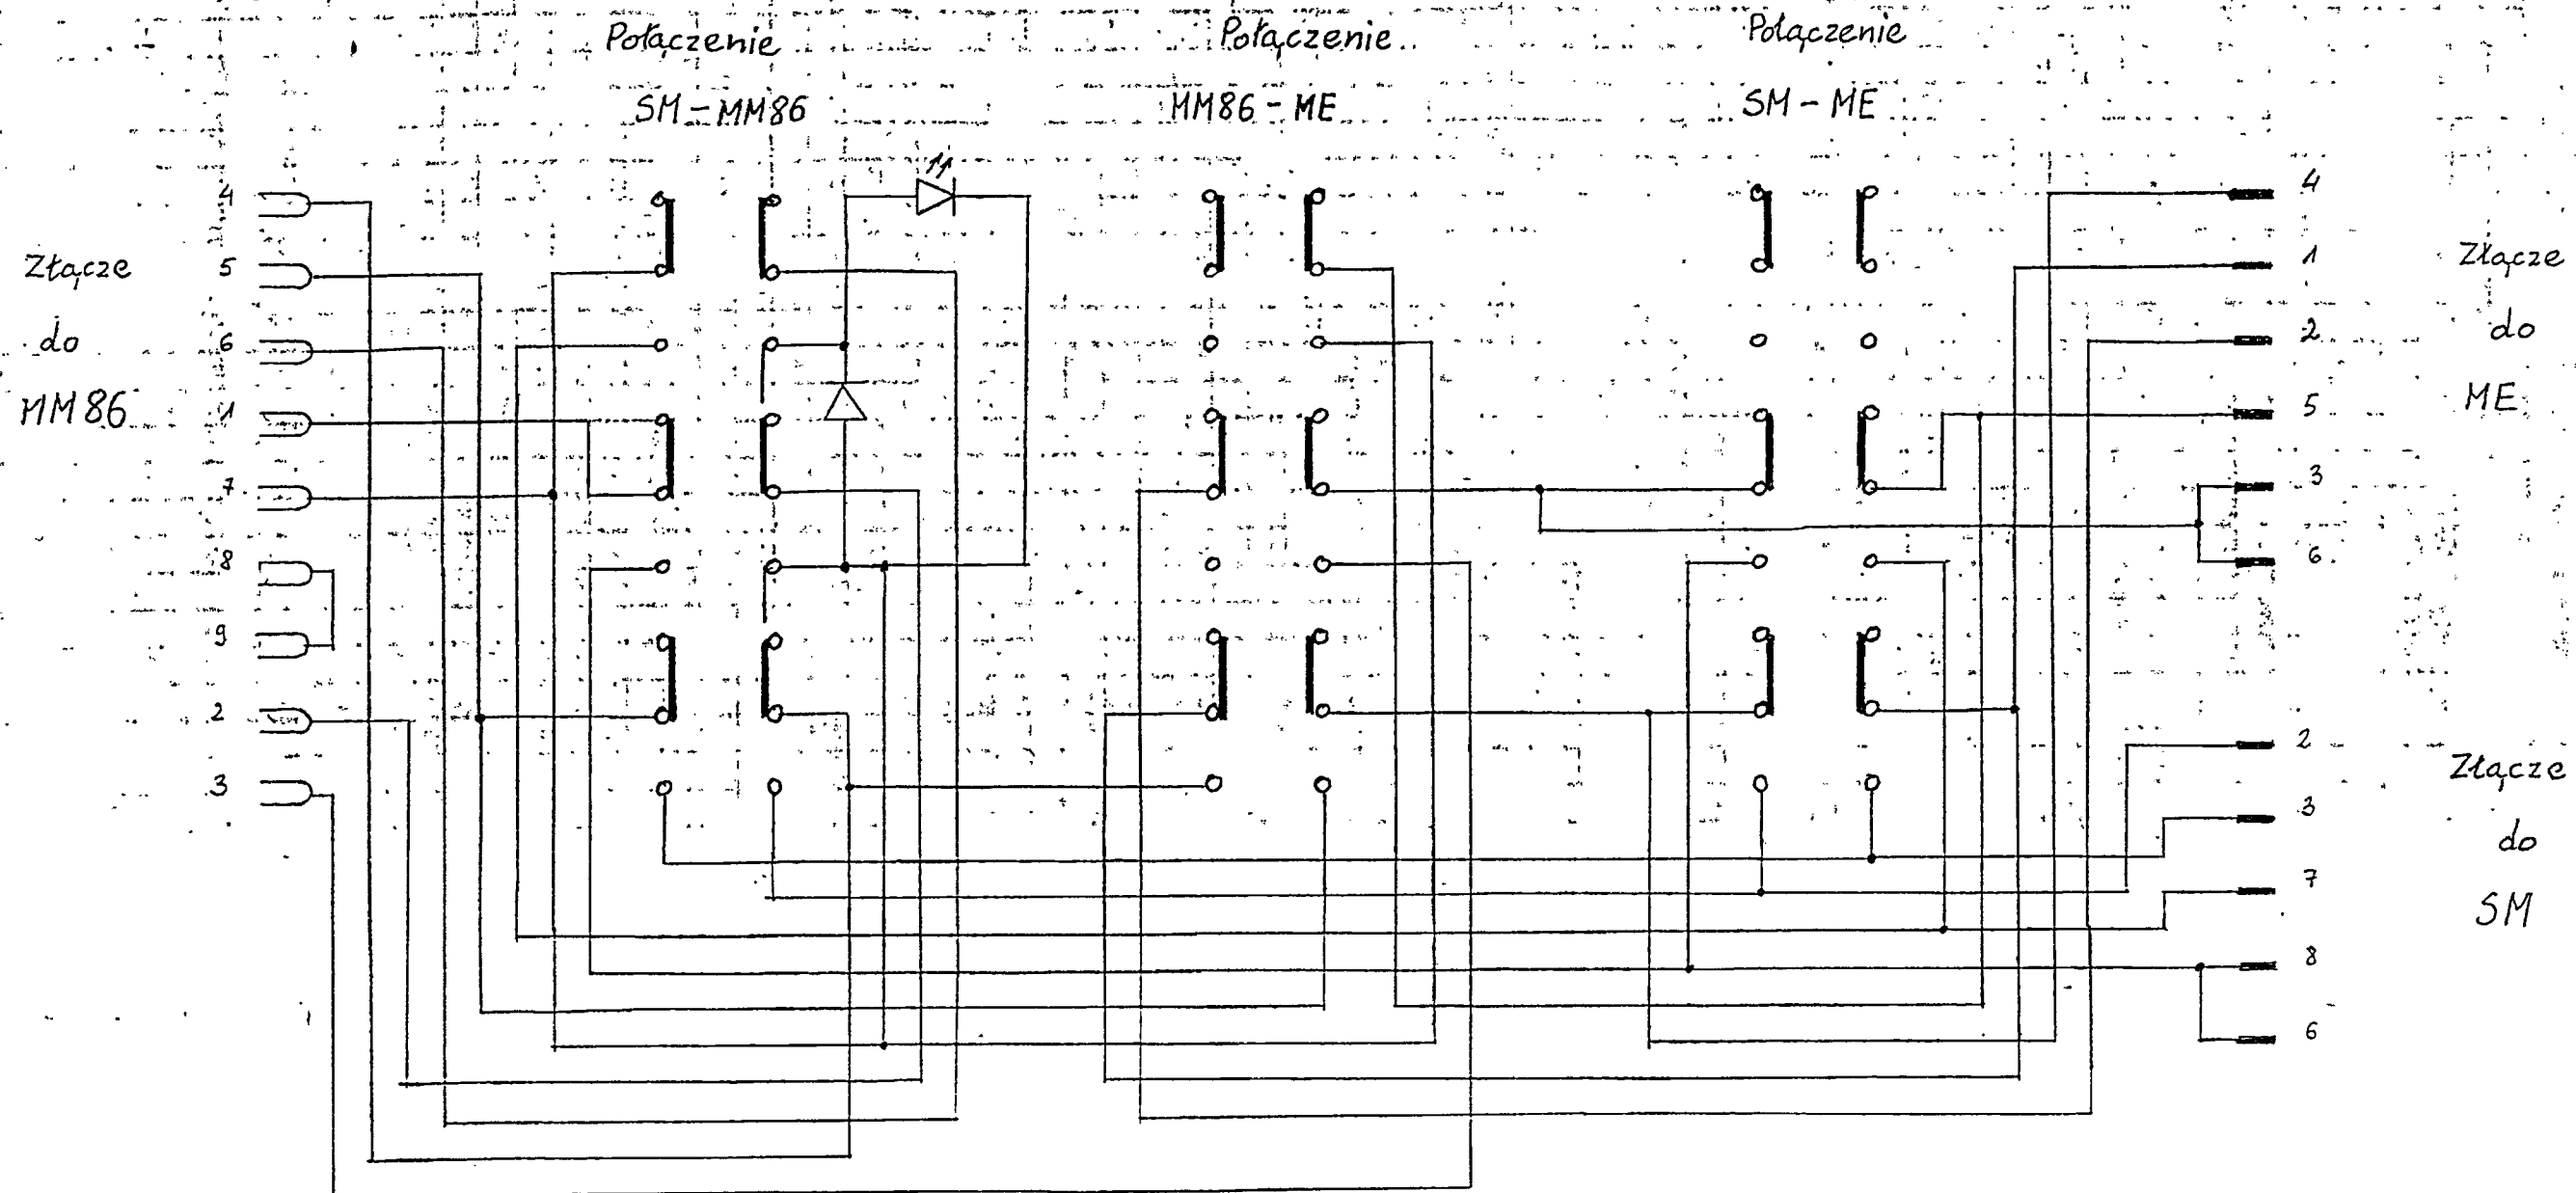 Połączenie
SM-MM86
Połączenie
MM86-ME
Połączenie
SM-ME
Złącze
do
MM86
4
5
6
1
7
8
9
2
3
4
1
2
5
3
6
Złącze
do
ME
2
3
7
8
6
Złącze
do
SM